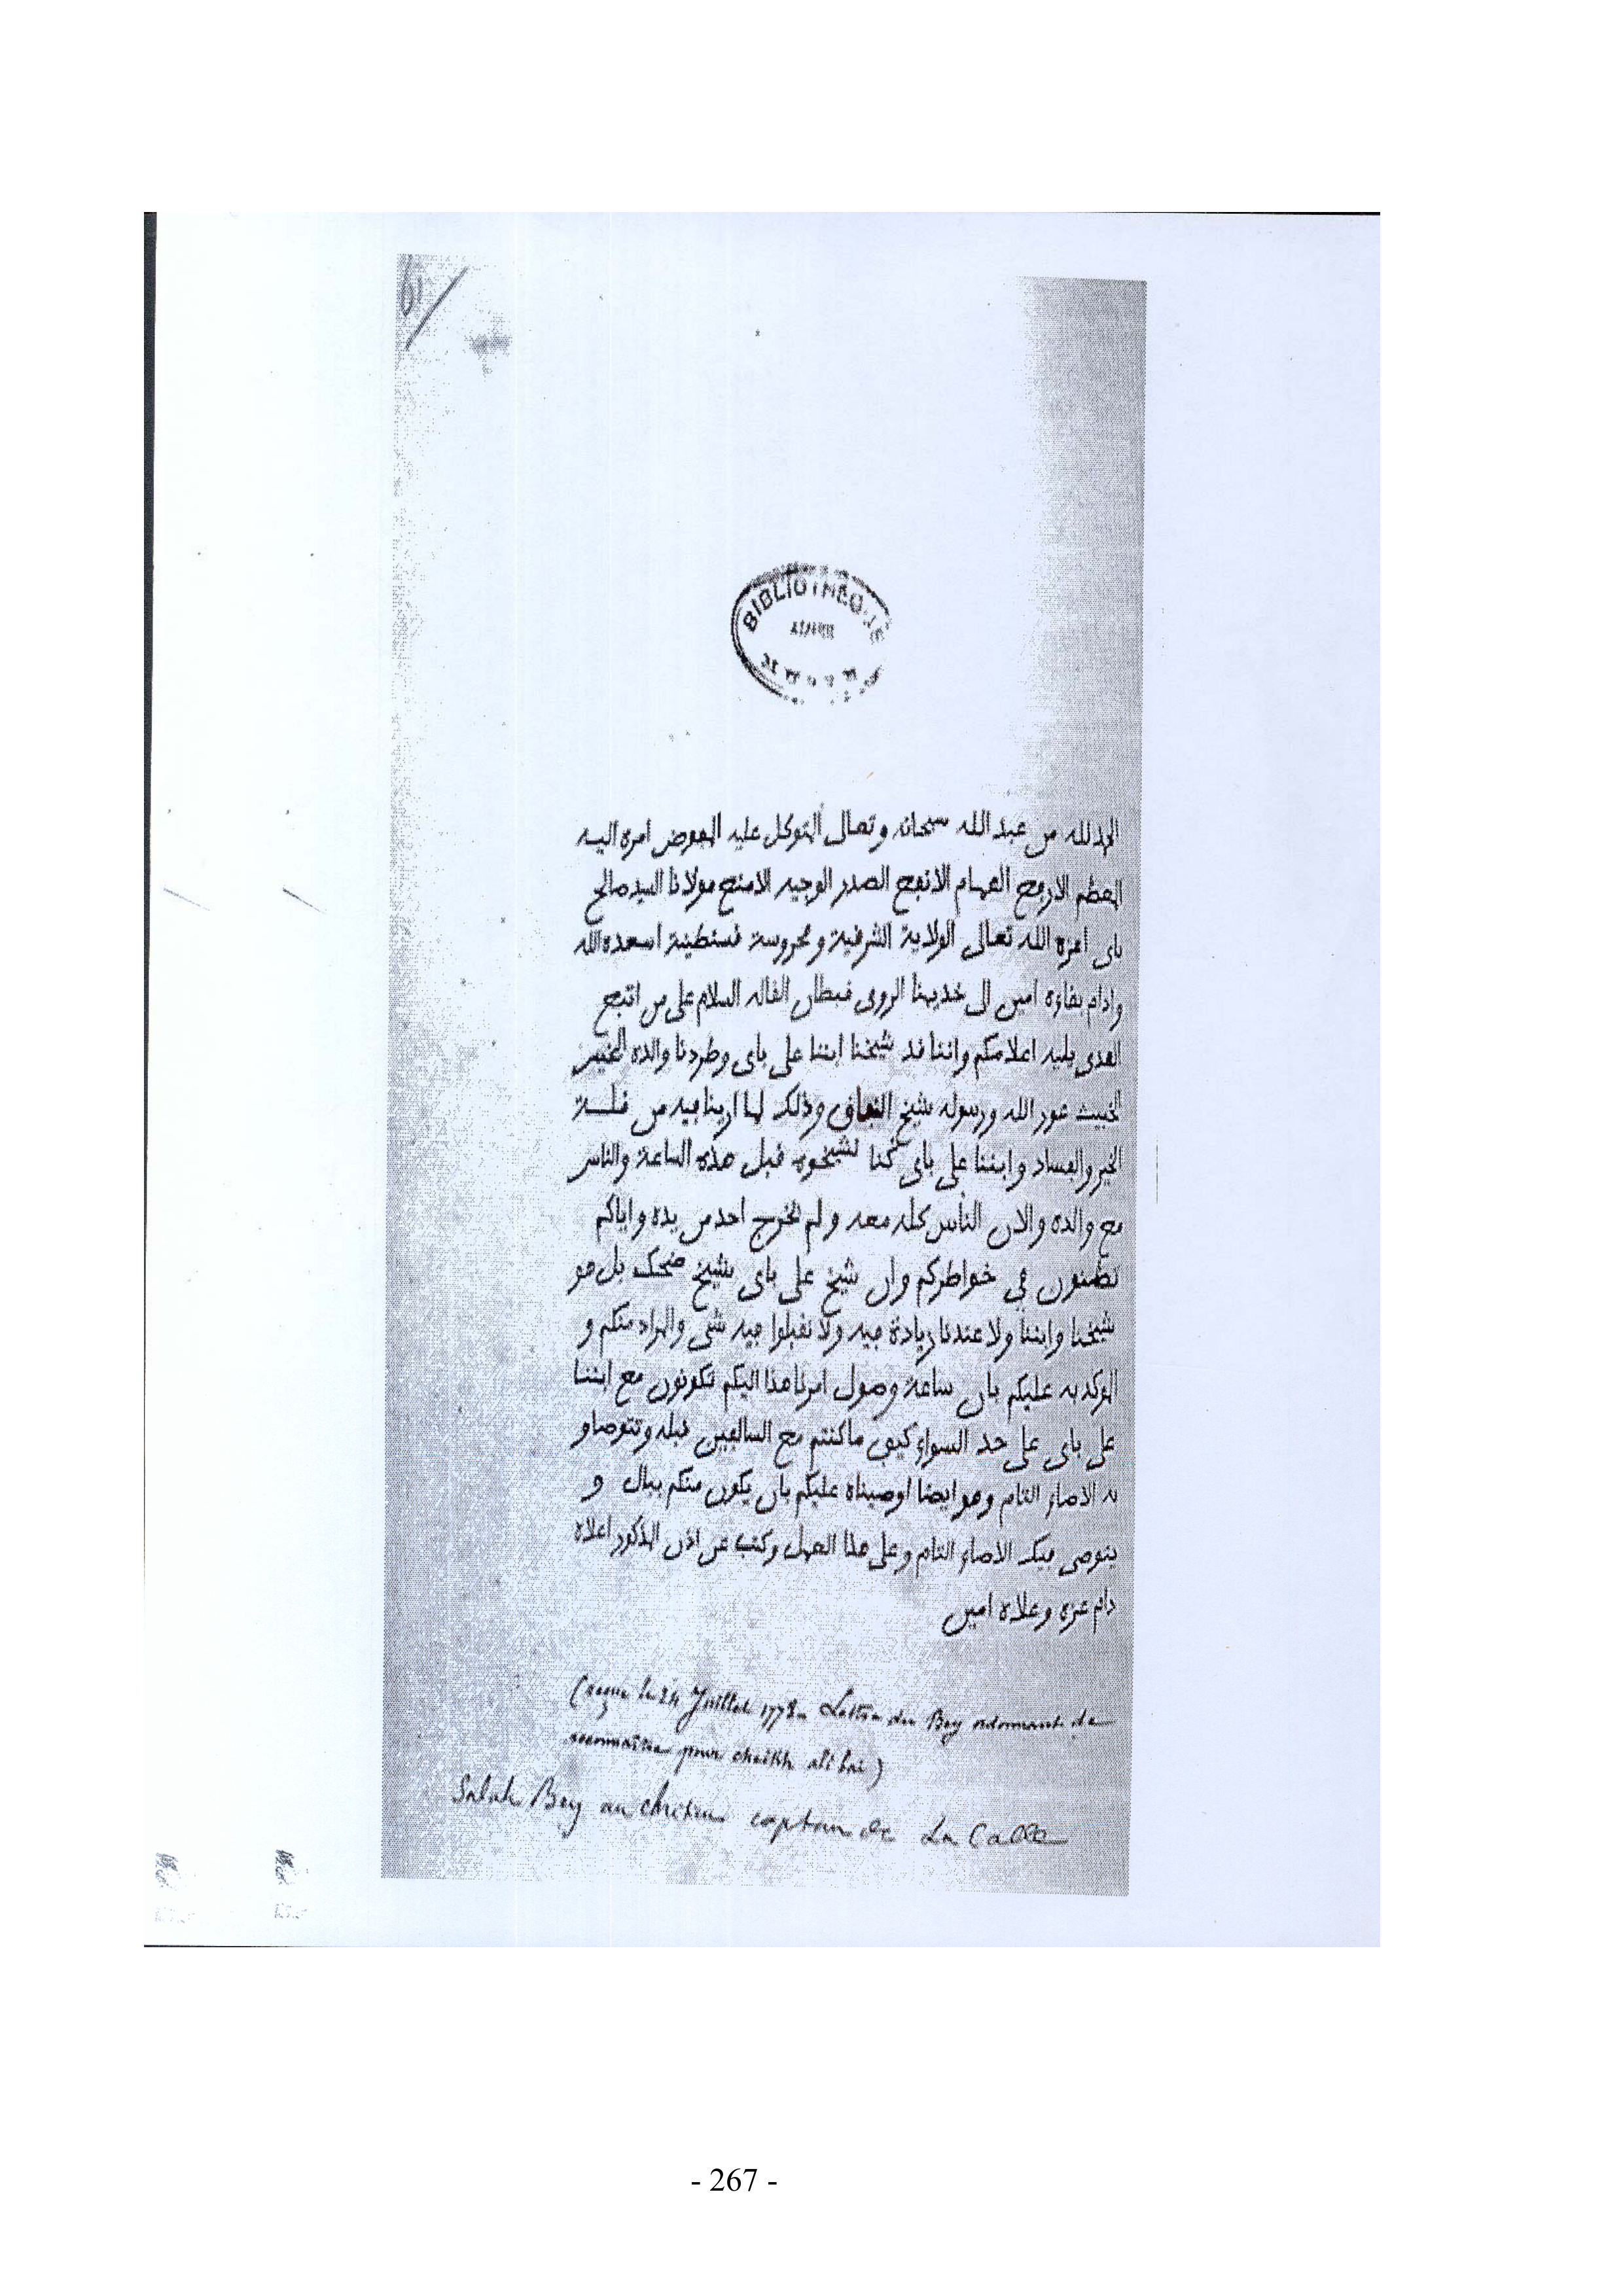 61
BIBLIOTHEQUE
الحمد لله من عبد الله سبحانه وتعالى المتوكل عليه المفوض امره اليه
المعظم الارفع الهمام الانفع الصدر الوجيه الامنع مولانا السيد صالح
باي امره الله تعالى الولاية الشرقية ومحروسة قسنطينة اسعده الله
وادام بقاؤه امين الى خديمنا الرومي قبطان القاله السلام على من اتبع
الهدى يليه اعلامكم واننا قد شيخنا ابننا علي باي وطردنا والده
الخبيث عدو الله ورسوله شيخ النفاق وذلك لما ارينا فيه من قلة
الخير والفساد وابننا علي باي كنا لشيخوه قبل هذه الساعة والناس
مع والده والان الناس كله معه ولم يخرج احد من يده واياكم
تظنون في خواطركم وان شيخ علي باي شيخ ضحك بل هو
شيخنا وابننا ولا عندنا زيادة فيه ولا نقبلوا فيه شي والمراد منكم و
الموكد به عليكم بان ساعة وصول امرنا هذا اليكم تكونون مع ابننا
علي باي على حد السواء كيف ما كنتم مع السالفين قبله وتتوصاو
به الاصاء التام وهو ايضا اوصيناه عليكم بان يكون منكم ببال و
يتوصى فيك الاصاء التام وعلى هذا العمل وكتب عن اذن المذكور اعلاه
دام عزه وعلاه امين
(reçue le 24 Juillet 1772 Lettre du Bey ordonnant de
reconnaitre pour cheikh ali bai)
Salah Bey au chretien captain de La Calle
- 267 -